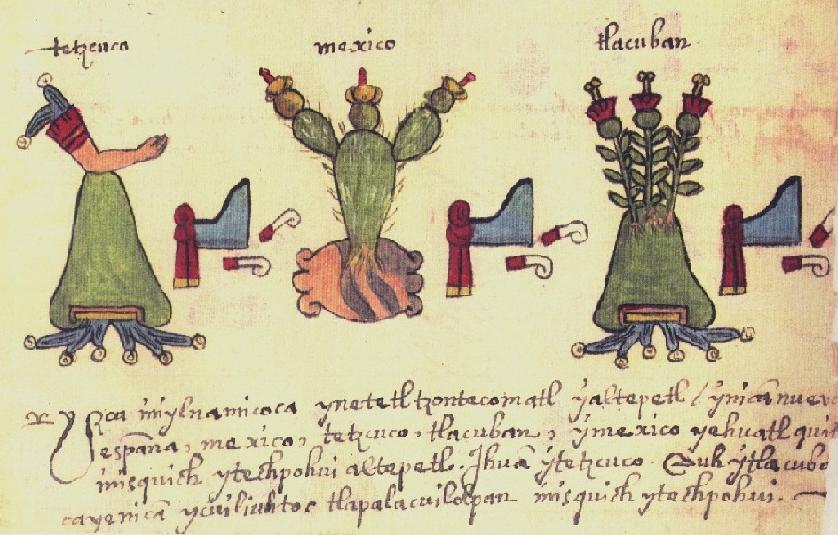 tetzcuco
mexico
tlacuban
Yzca imylnamicoca ynetetl tzontecomatl yaltepetl / ynican nueva
españa, mexico, tetzcuco, tlacuban, ymexico yehuatl
imisquich ytechpohui altepetl. Ihuã ytetzcuco.
cayenicã ycuiliuhtoc tlapalacuilolpan misquich ytechpohui.